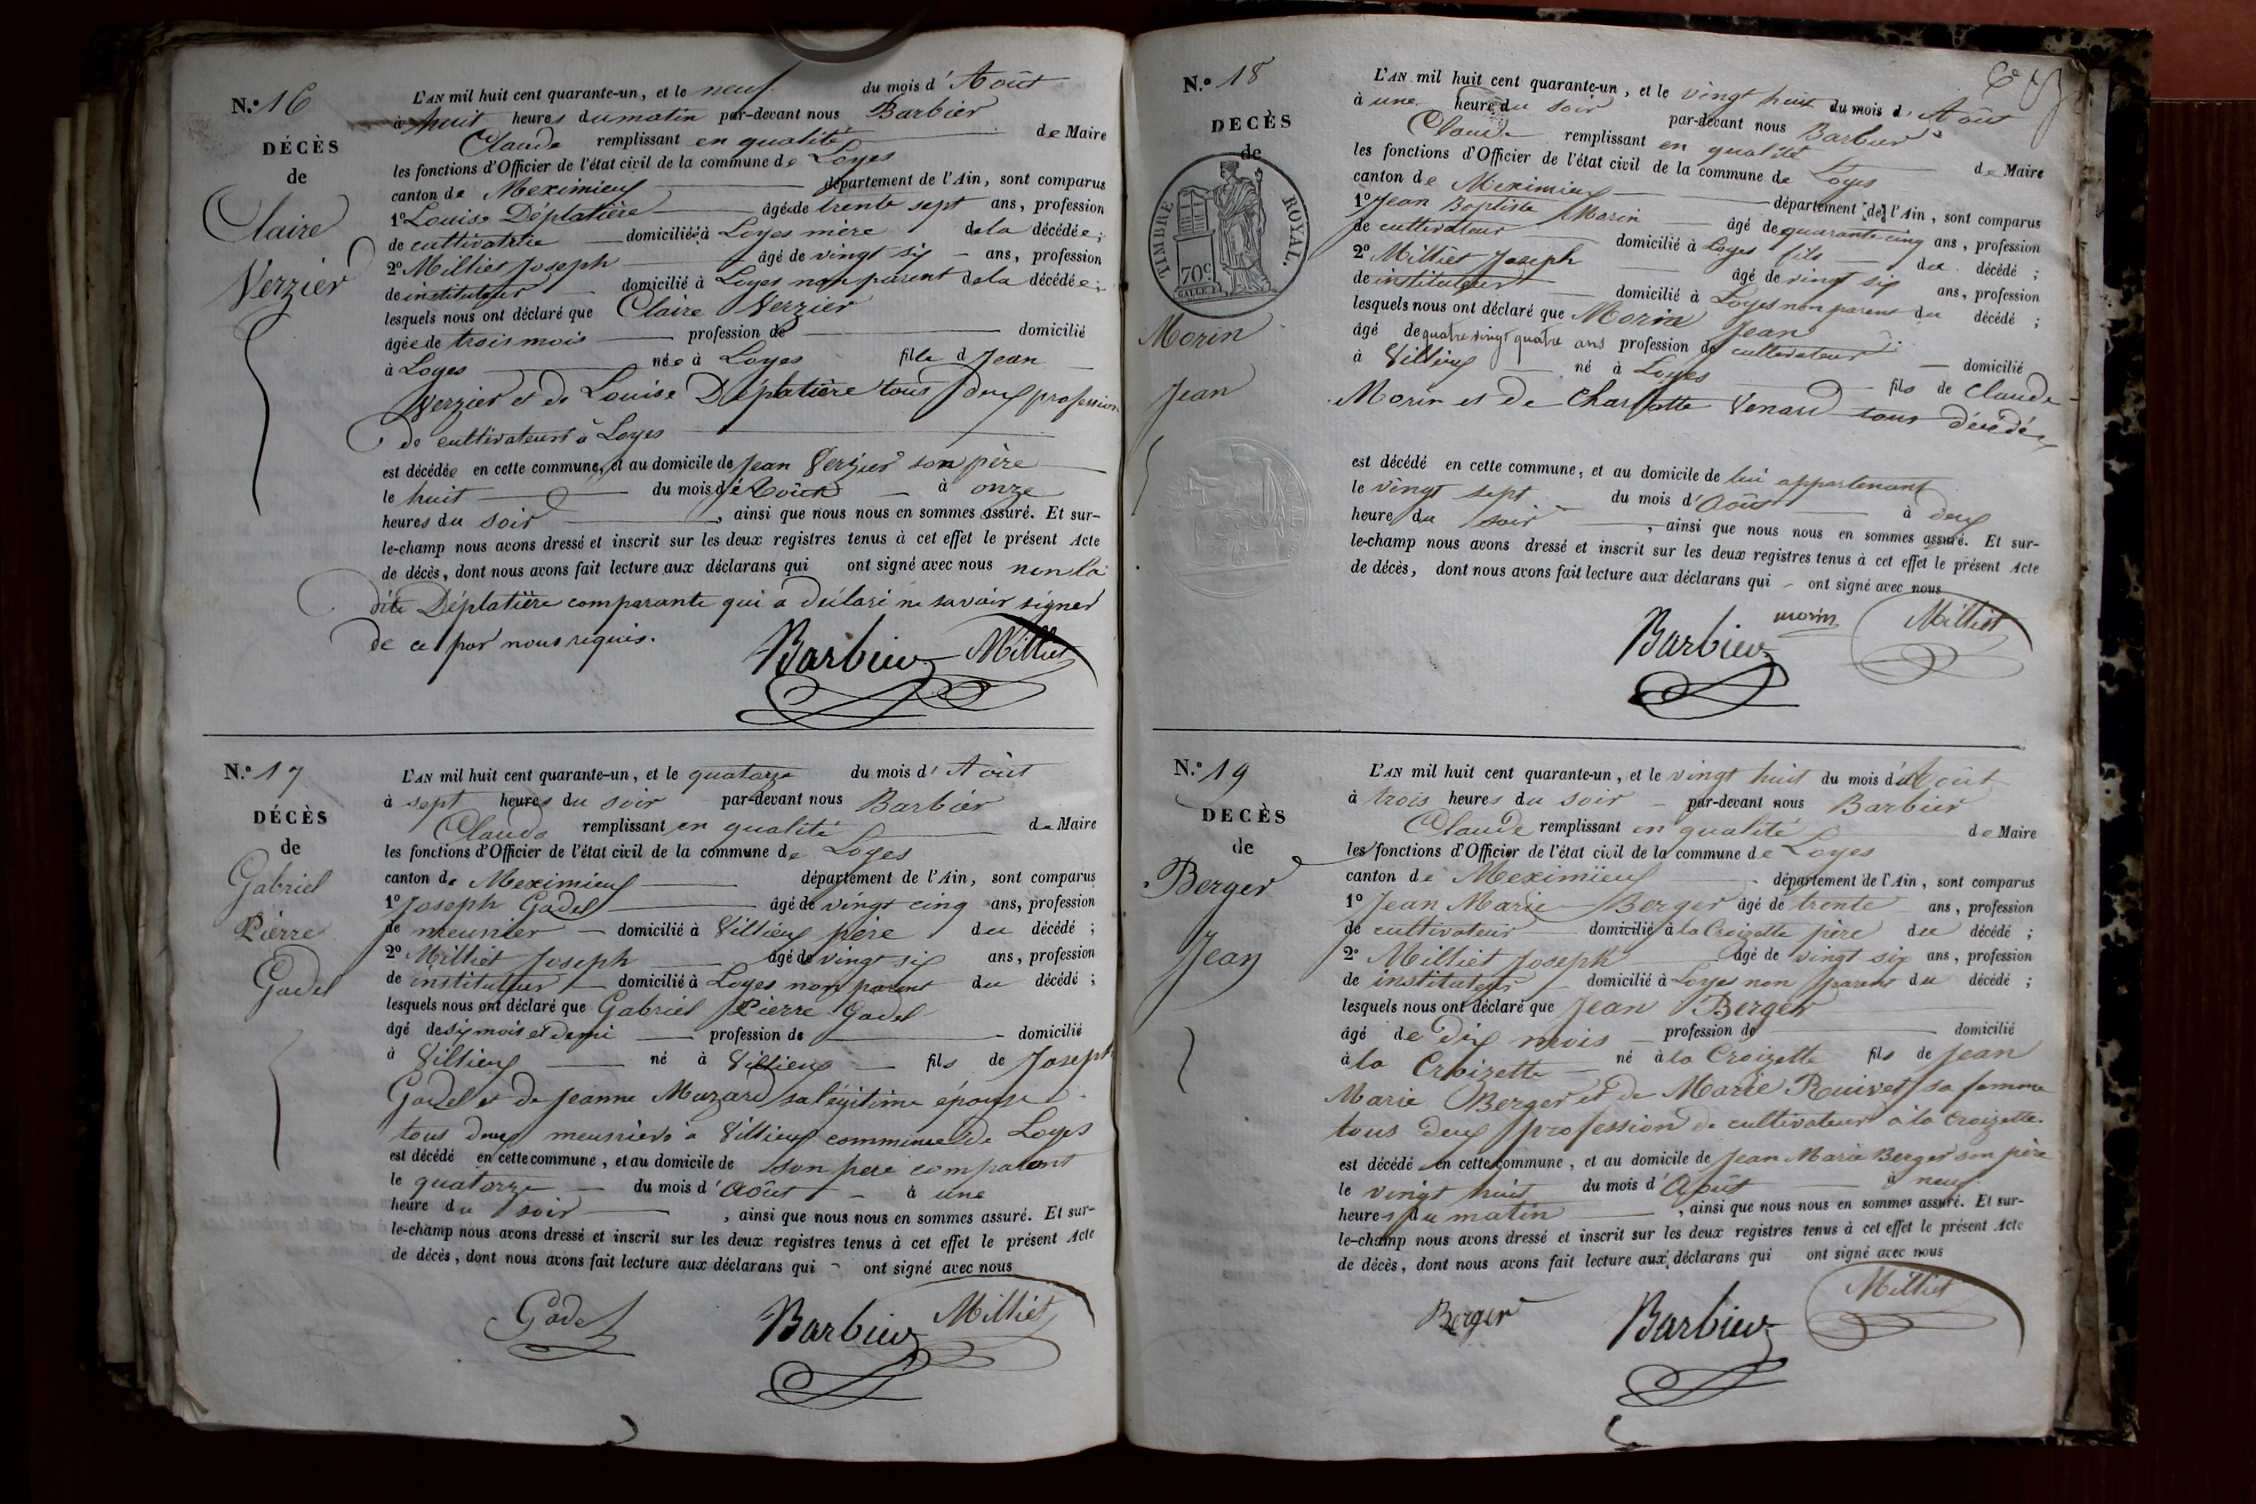 N.° 16
DÉCÈS
de
Claire
Verzier
L'AN mil huit cent quarante-un, et le neuf du mois d'Août
à huit heures du matin par-devant nous Barbier
Claude remplissant en qualité de Maire
les fonctions d'Officier de l'état civil de la commune de Loyes
canton de Meximieux département de l'Ain, sont comparus
1° Louise Déplatière âgée de trente sept ans, profession
de cultivatrice domiciliée à Loyes mère de la décédée;
2° Milliet Joseph âgé de vingt six ans, profession
de instituteur domicilié à Loyes non parent de la décédée;
lesquels nous ont déclaré que Claire Verzier
âgée de trois mois profession de domicilié
à Loyes née à Loyes fille d Jean
Verzier et de Louise Déplatière tous deux profession
de cultivateurs à Loyes
est décédée en cette commune, et au domicile de Jean Verzier son père
le huit du mois d'Août à onze
heures du soir, ainsi que nous nous en sommes assuré. Et sur-
le-champ nous avons dressé et inscrit sur les deux registres tenus à cet effet le présent Acte
de décès, dont nous avons fait lecture aux déclarans qui ont signé avec nous non la
dite Déplatière comparante qui a déclaré ne savoir signer
de ce par nous requis.
Barbier Milliet
N.° 17
DÉCÈS
de
Gabriel
Pierre
Godel
L'AN mil huit cent quarante-un, et le quatorze du mois d'Août
à sept heures du soir par-devant nous Barbier
Claude remplissant en qualité de Maire
les fonctions d'Officier de l'état civil de la commune de Loyes
canton de Meximieux département de l'Ain, sont comparus
1° Joseph Godel âgé de vingt cinq ans, profession
de meunier domicilié à Villieux père du décédé;
2° Milliet Joseph âgé de vingt six ans, profession
de instituteur domicilié à Loyes non parent du décédé;
lesquels nous ont déclaré que Gabriel Pierre Godel
âgé de six mois et demi profession de domicilié
à Villieux né à Villieux fils de Joseph
Godel et de Jeanne Mazard sa légitime épouse
tous deux meuniers à Villieux commune de Loyes
est décédé en cette commune, et au domicile de son père comparant
le quatorze du mois d'Août à une
heure du soir, ainsi que nous nous en sommes assuré. Et sur-
le-champ nous avons dressé et inscrit sur les deux registres tenus à cet effet le présent Acte
de décès, dont nous avons fait lecture aux déclarans qui ont signé avec nous
Godel Barbier Milliet
N.° 18
DÉCÈS
de
TIMBRE ROYAL.
70c
Morin
Jean
L'AN mil huit cent quarante-un, et le vingt huit du mois d'Août
à une heure du soir par-devant nous Barbier
Claude remplissant en qualité de Maire
les fonctions d'Officier de l'état civil de la commune de Loyes
canton de Meximieux département de l'Ain, sont comparus
1° Jean Baptiste Morin âgé de quarante cinq ans, profession
de cultivateur domicilié à Loyes fils du décédé;
2° Milliet Joseph âgé de vingt six ans, profession
de instituteur domicilié à Loyes non parent du décédé;
lesquels nous ont déclaré que Morin Jean
âgé de quatre vingt quatre ans profession de cultivateur domicilié
à Villieux né à Loyes fils de Claude
Morin et de Charlotte Venard tous décédés
est décédé en cette commune, et au domicile de lui appartenant
le vingt sept du mois d'Août à deux
heure du soir, ainsi que nous nous en sommes assuré. Et sur-
le-champ nous avons dressé et inscrit sur les deux registres tenus à cet effet le présent Acte
de décès, dont nous avons fait lecture aux déclarans qui ont signé avec nous
Barbier morin Milliet
N.° 19
DÉCÈS
de
Berger
Jean
L'AN mil huit cent quarante-un, et le vingt huit du mois d'Août
à trois heures du soir par-devant nous Barbier
Claude remplissant en qualité de Maire
les fonctions d'Officier de l'état civil de la commune de Loyes
canton de Meximieux département de l'Ain, sont comparus
1° Jean Marie Berger âgé de trente ans, profession
de cultivateur domicilié à la Croizette père du décédé;
2° Milliet Joseph âgé de vingt six ans, profession
de instituteur domicilié à Loyes non parent du décédé;
lesquels nous ont déclaré que Jean Berger
âgé de dix mois profession de domicilié
à la Croizette né à la Croizette fils de Jean
Marie Berger et de Marie Rouivet sa femme
tous deux profession de cultivateur à la Croizette.
est décédé en cette commune, et au domicile de Jean Marie Berger son père
le vingt huit du mois d'Août à neuf
heures du matin, ainsi que nous nous en sommes assuré. Et sur-
le-champ nous avons dressé et inscrit sur les deux registres tenus à cet effet le présent Acte
de décès, dont nous avons fait lecture aux déclarans qui ont signé avec nous
Berger Barbier Milliet